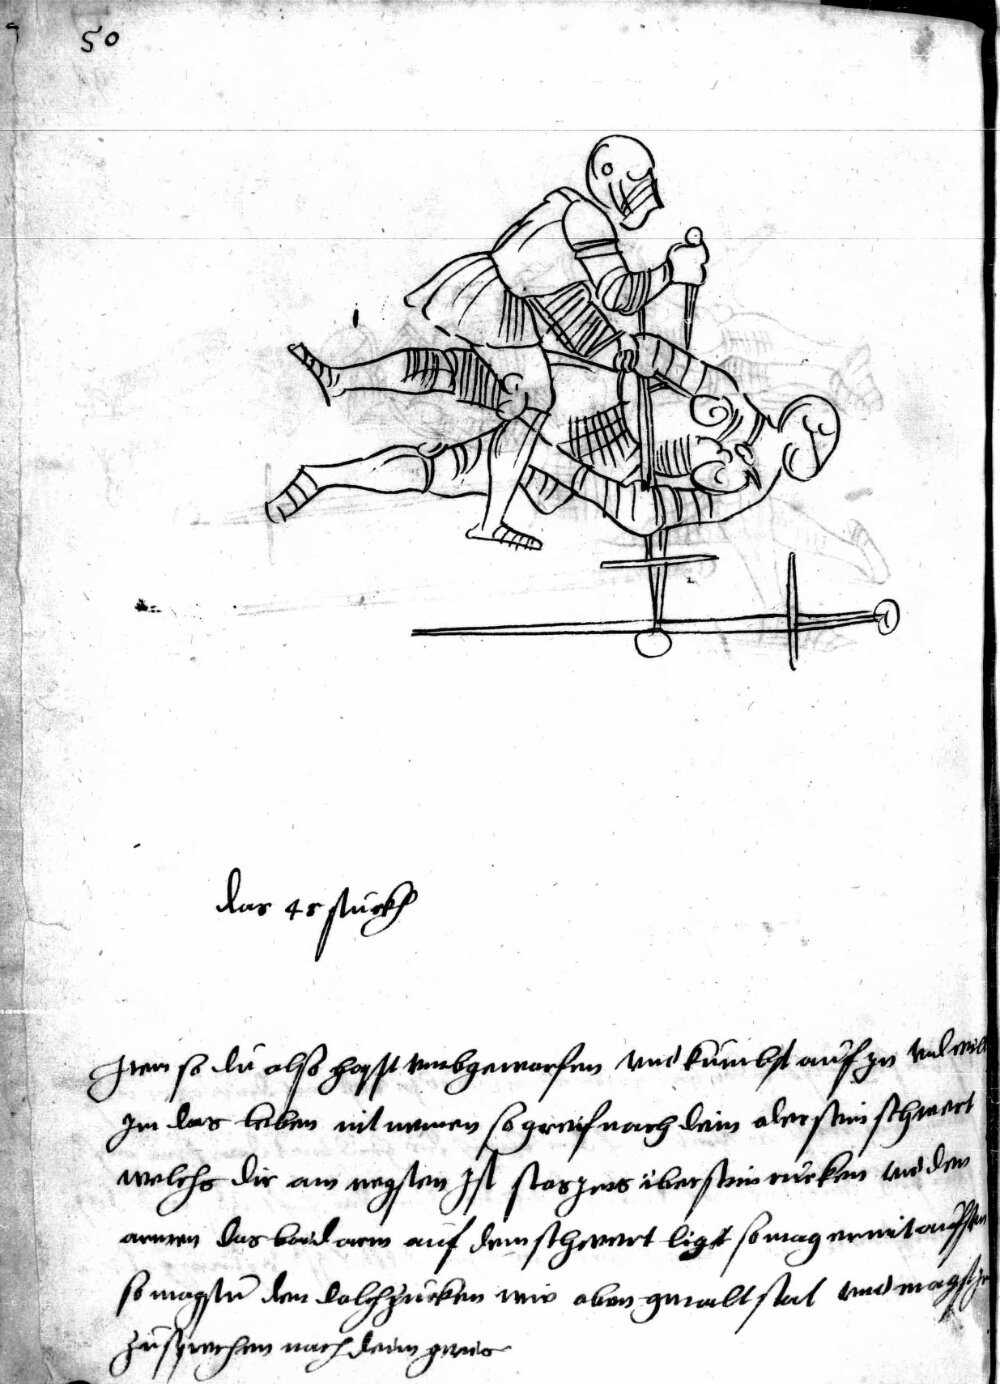 50
das 48 stuckh
Item so du also hast umbgeworfen und kumbst auf in und wilt
im das leben nit nemen so greif nach deim oder seim schwert
welchs dir am negsten ist stos ims uber sein rucken und den
armen das baid arm auf dem schwert ligt so mag er nit aufsten
so magstu den dolch zucken wie oben gmalt stat und magst im
zusprechen nach deim gvies